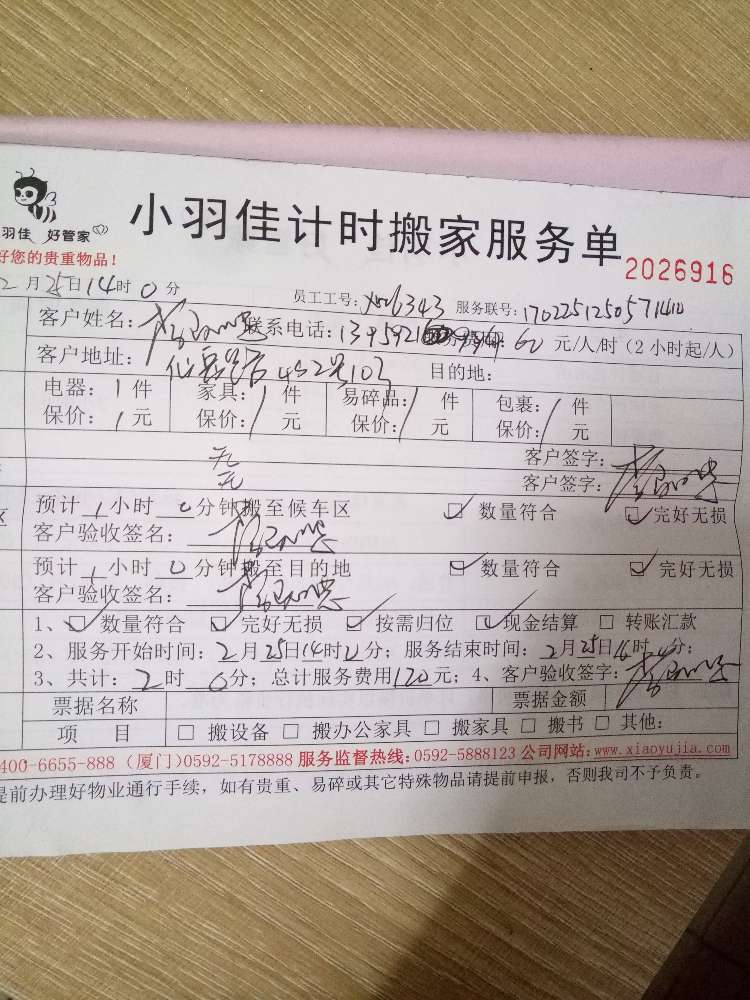 羽佳 好管家
小羽佳计时搬家服务单
2026916
好您的贵重物品!
2月25日14时0分
员工工号: 6343 服务联号:
客户姓名: 联系电话: 60元/人/时(2小时起/人)
客户地址: 目的地:
电器:1件 家具:1件 易碎品:1件 包裹:1件
保价:1元 保价:1元 保价:1元 保价:1元
无 客户签字:
无 客户签字:
预计1小时0分钟搬至候车区 ☑数量符合 ☑完好无损
客户验收签名:
预计1小时0分钟搬至目的地 ☑数量符合 ☑完好无损
客户验收签名:
1、☑数量符合 ☑完好无损 ☑按需归位 ☑现金结算 □转账汇款
2、服务开始时间:2月25日14时0分;服务结束时间:2月25日16时 分;
3、共计:2时0分;总计服务费用120元;4、客户验收签字:
票据名称 票据金额
项 目 □搬设备 □搬办公家具 □搬家具 □搬书 □其他:
400-6655-888(厦门)0592-5178888 服务监督热线:0592-5888123 公司网站:www.xiaoyujia.com
提前办理好物业通行手续,如有贵重、易碎或其它特殊物品请提前申报,否则我司不予负责。